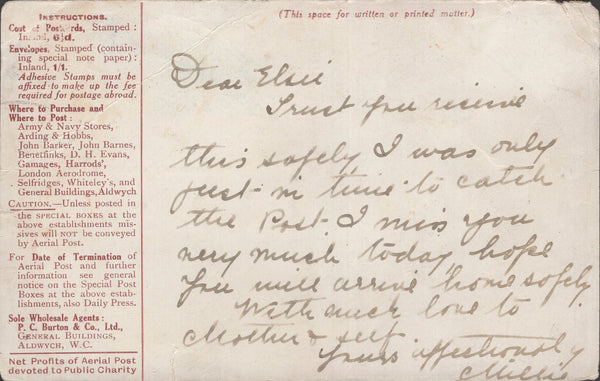 INSTRUCTIONS.
Cost of Postcards, Stamped :
Inland, 6½d.
Envelopes, Stamped (contain-
ing special note paper) :
Inland, 1/1.
Adhesive Stamps must be
affixed to make up the fee
required for postage abroad.
Where to Purchase and
Where to Post :
Army & Navy Stores,
Arding & Hobbs,
John Barker, John Barnes,
Benetfinks, D. H. Evans,
Gamages, Harrods',
London Aerodrome,
Selfridges, Whiteley's, and
General Buildings, Aldwych
CAUTION.—Unless posted in
the SPECIAL BOXES at the
above establishments mis-
sives will NOT be conveyed
by Aerial Post.
For Date of Termination of
Aerial Post and further
information see general
notice on the Special Post
Boxes at the above estab-
lishments, also Daily Press.
Sole Wholesale Agents :
P. C. Burton & Co., Ltd.,
GENERAL BUILDINGS,
ALDWYCH, W.C.
Net Profits of Aerial Post
devoted to Public Charity
(This space for written or printed matter.)
Dear Elsie
Trust you receive
this safely I was only
just in time to catch
the Post. I miss you
very much today, hope
you will arrive home safely
With much love to
Mother & self
Yours affectionately
Millie